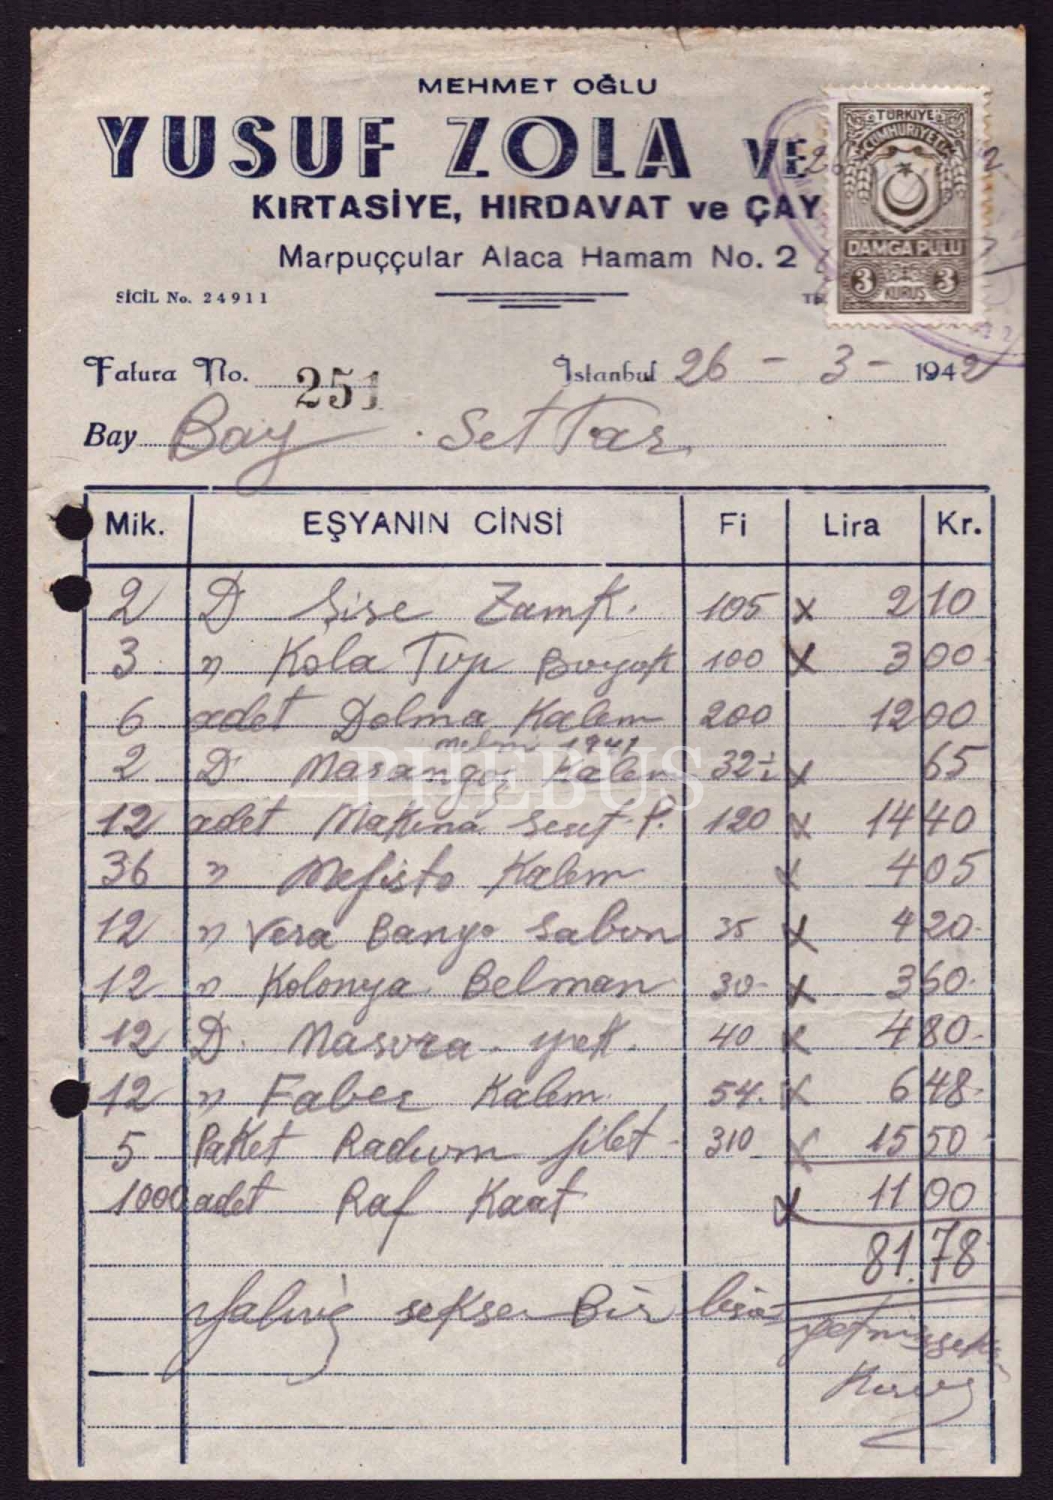 MEHMET OĞLU
YUSUF ZOLA VE
KIRTASİYE, HIRDAVAT ve ÇAY
Marpuççular Alaca Hamam No. 2
SİCİL No. 24911
TÜRKİYE
CUMHURİYETİ
DAMGA PULU
3 KURUŞ 3
Fatura No. 251 İstanbul 26 - 3 - 1942
Bay Bay Settar
Mik. EŞYANIN CİNSİ Fi Lira Kr.
2 D Şişe Zamk. 105 x 2 10
3 " Kola Tüp Büyük 100 x 3 00
6 adet Dolma Kalem 200 12 00
1941
2 D. Marangoz Kalem 32½ x 65
12 adet Makina P. 120 x 14 40
36 " Mefisto Kalem x 4 05
12 " Vera Banyo Sabun 35 x 4 20
12 " Kolonya Belman 30 x 3 60
12 D. Masura 40 x 4 80
12 " Faber Kalem 54 x 6 48
5 Paket Radium jilet 310 x 15 50
1000 adet Raf Kaat x 11 00
81.78
Yalnız seksen Bir lira
yetmişsekiz
Kuruş
PHEBUS